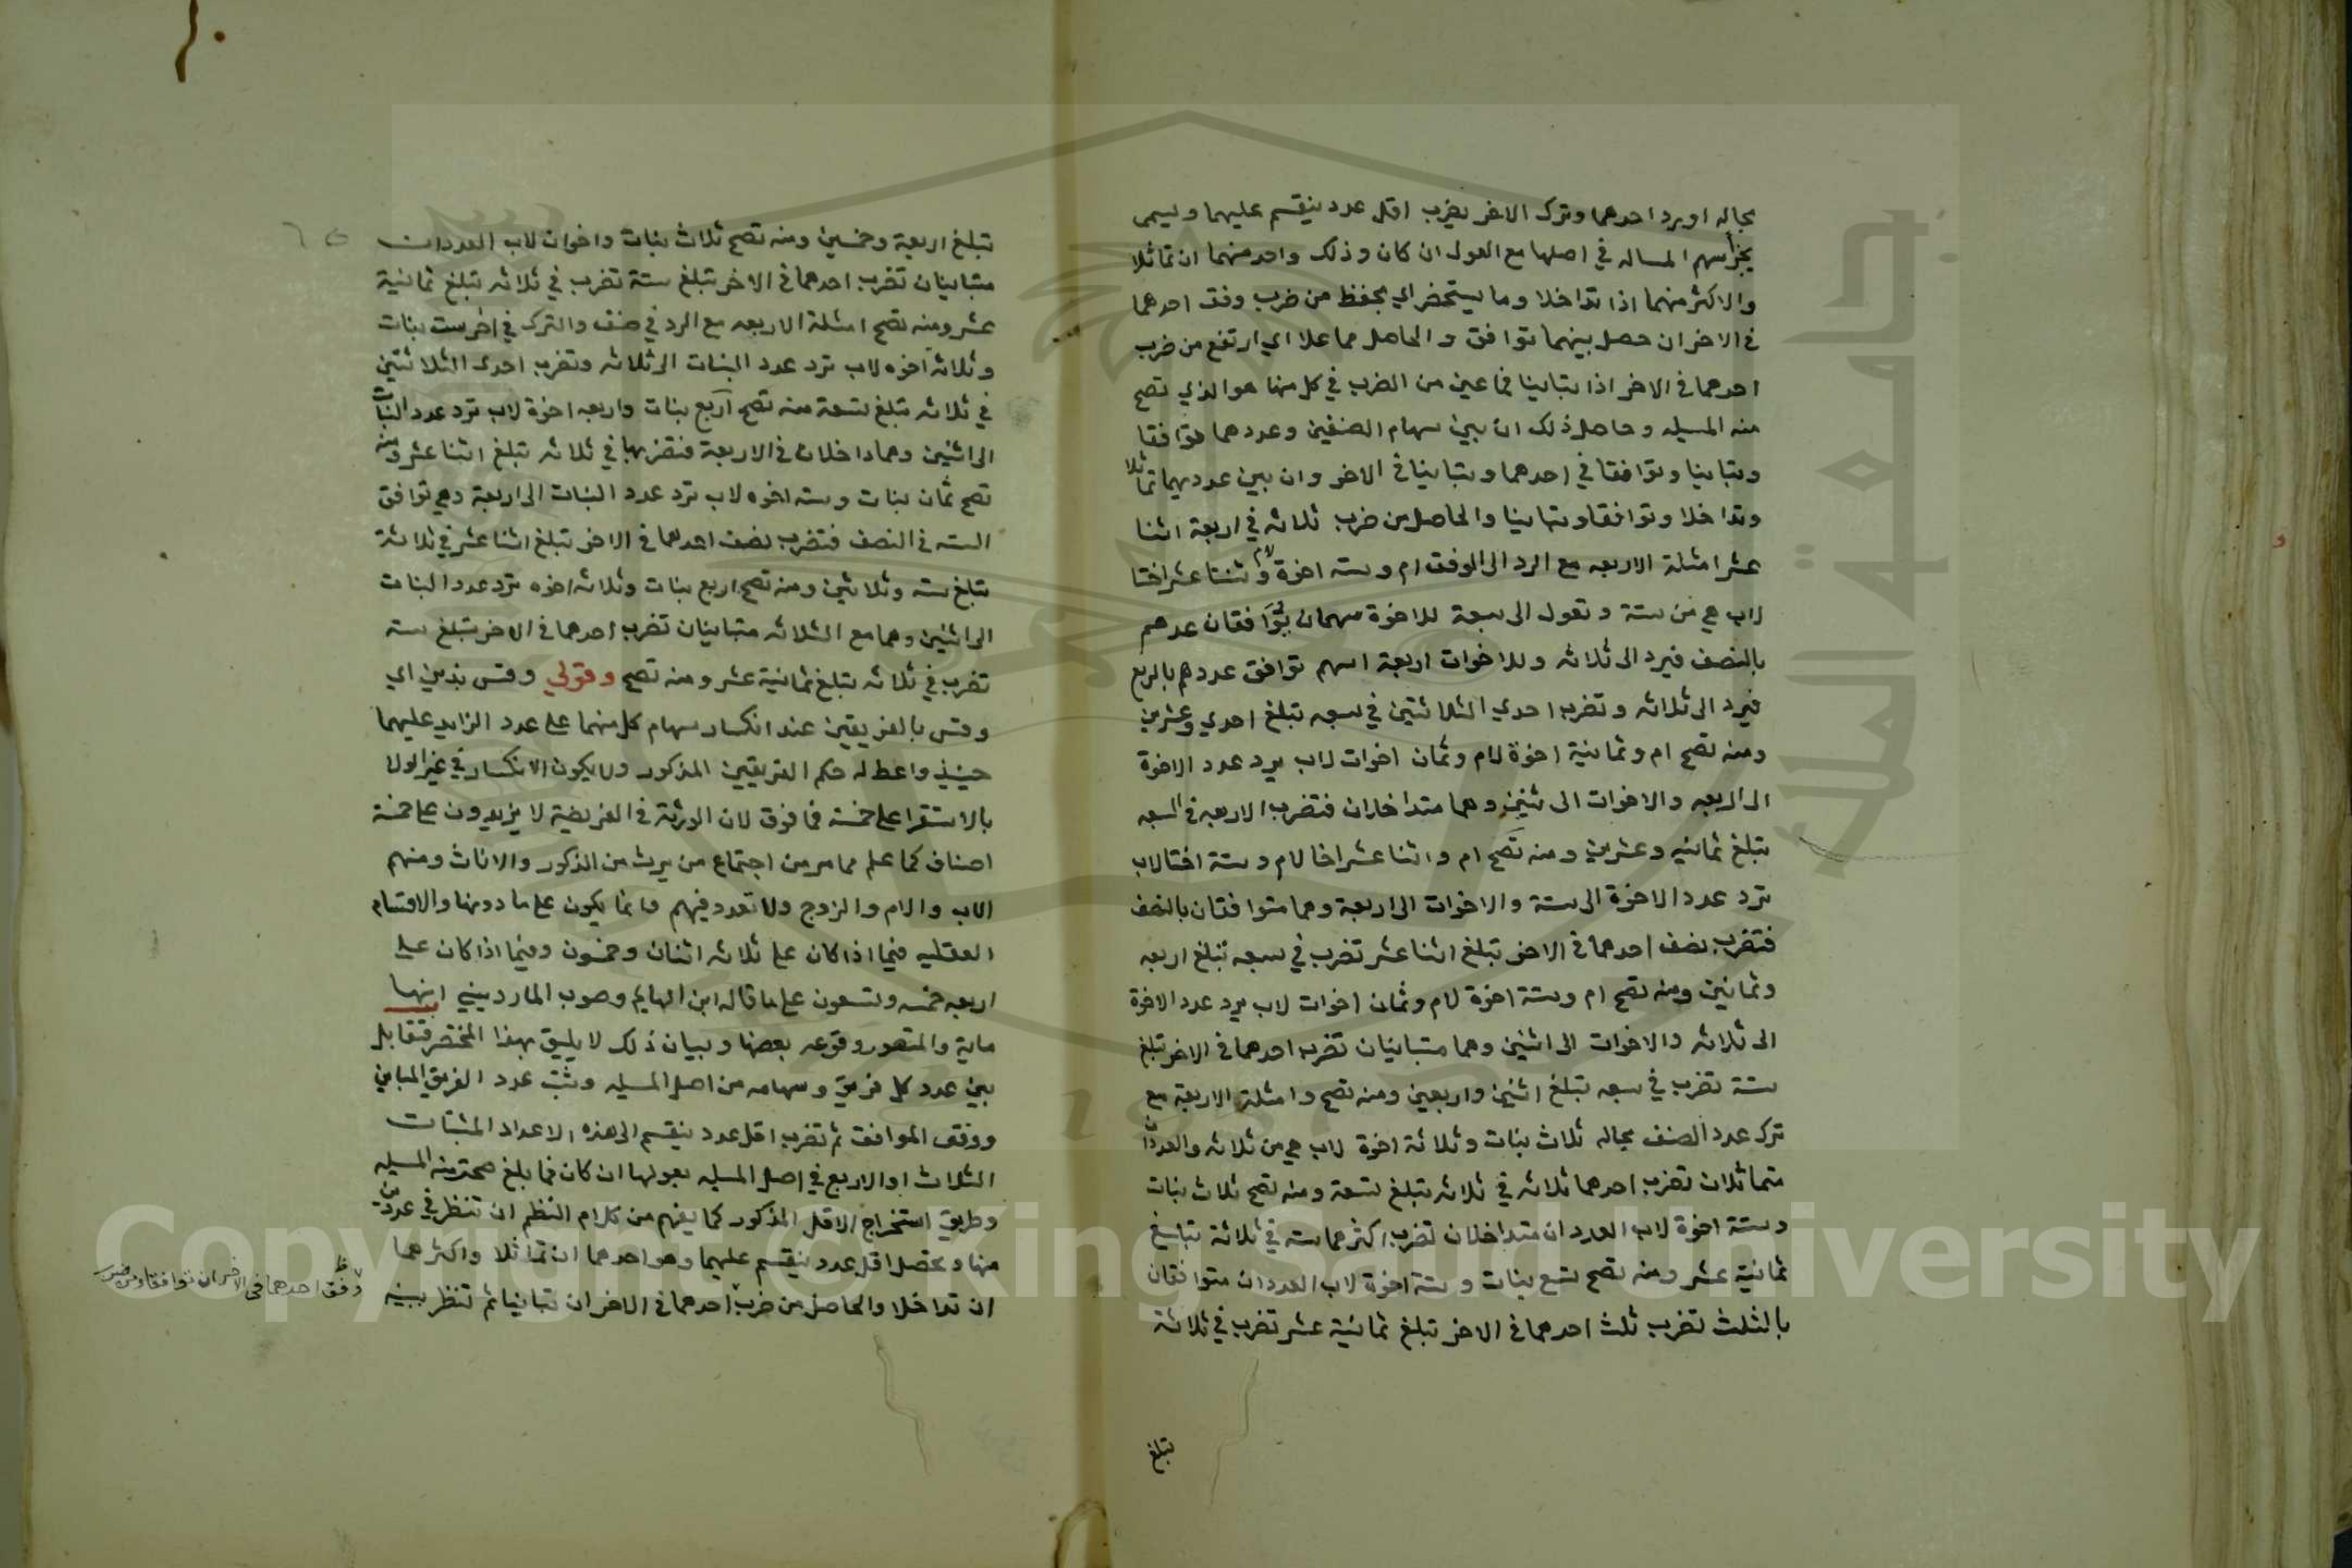 بحاله او يرد احدهما وترك الاخر يضرب اقل عدد ينقسم عليهما ويسمى
بجزأسهم المساله في اصلها مع العول ان كان وذلك واحد منهما ان تماثلا
والاكثر منهما اذا تداخلا وما يستحضر اي يحفظ من ضرب وفق احدهما
في الاخر ان حصل بينهما توافق والحاصل مما علا اي ارتفع من ضرب
احدهما في الاخر اذا تباينا فما عين من الضرب في كل منها هو الذي تصح
منه المسيله وحاصل ذلك ان بين سهام الصنفين وعددهما توافقا
وتباينا وتوافقا في احدهما وتباينا في الاخر وان بين عدديهما تماثلا
وتداخلا وتوافقا وتباينا والحاصل من ضرب ثلاثه في اربعة اثنا
عشر امثلة الاربعه مع الرد الى الوفق ام وسته اخوة لام وثنتا عشر اختا
لاب هي من ستة وتعول الى سبعة للاخوة سهمان يوافقان عدهم
بالنصف فيرد الى ثلاثه وللاخوات اربعة اسهم توافق عددهم بالربع
فيرد الى ثلاثه وتضرب احدي الثلاثتين في سبعه تبلغ احدي وعشرين
ومنه تصح ام وثمانية اخوة لام وثمان اخوات لاب يرد عدد الاخوة
الى اربعه والاخوات الى ثنين وهما متداخلان فتضرب الاربعه في السبعه
تبلغ ثمانيه وعشرين ومنه تصح ام واثنا عشر اخا لام وستة اختا لاب
ترد عدد الاخوة الى ستة والاخوات الى اربعة وهما متوافقان بالنصف
فتضرب نصف احدهما في الاخر تبلغ اثنا عشر تضرب في سبعه تبلغ اربعه
وثمانين ومنه تصح ام وستة اخوة لام وثمان اخوات لاب يرد عدد الاخوة
الى ثلاثه والاخوات الى اثنين وهما متباينان تضرب احدهما في الاخر تبلغ
ستة تضرب في سبعه تبلغ اثنين واربعين ومنه تصح وامثلة الاربعة مع
ترك عدد الصنف بحاله ثلاث بنات وثلاثة اخوة لاب هي من ثلاثه والعددان
متماثلان تضرب احدهما ثلاثه في ثلاثه تبلغ تسعة ومنه تصح ثلاث بنات
وستة اخوة لاب العددان متداخلان تضرب اكثرهما سته في ثلاثة تبلغ
ثمانية عشر ومنه تصح تسع بنات وستة اخوة لاب العددان متوافقان
بالثلث تضرب ثلث احدهما في الاخر تبلغ ثمانية عشر تضرب في ثلاثة
تبلغ
تبلغ اربعة وخمسين ومنه تصح ثلاث بنات واخوان لاب العددان
متباينان تضرب احدهما في الاخر تبلغ ستة تضرب في ثلاثه تبلغ ثمانية
عشر ومنه تصح امثلة الاربعه مع الرد في صنف والترك في اخر ست بنات
وثلاثه اخوه لاب ترد عدد البنات الى ثلاثه وتضرب احدى الثلاثتين
في ثلاثه تبلغ تسعة منه تصح اربع بنات واربعه اخوة لاب ترد عدد البنات
الى اثنين وهما داخلان في الاربعة فتضربها في ثلاثه تبلغ اثنا عشر ومنه
تصح ثمان بنات وسته اخوه لاب ترد عدد البنات الى اربعة وهي توافق
السته في النصف فتضرب نصف احدهما في الاخر تبلغ اثنا عشر في ثلاثة
تبلغ سته وثلاثين ومنه تصح اربع بنات وثلاثه اخوه ترد عدد البنات
الى اثنين وهما مع الثلاثه متباينان تضرب احدهما في الاخر تبلغ سته
تضرب في ثلاثه تبلغ ثمانية عشر ومنه تصح وقولي وقس بذين اي
وقس بالفريقين عند انكسار سهام كل منهما على عدد الزايد عليهما
حينيذ واعط له حكم الفريقين المذكور ولا يكون الانكسار في غير الولا
بالاستقرا على خمسة فما فوق لان الورثة في الفريضة لا يزيدون على خمسة
اصناف كما علم مما مر من اجتماع من يرث من الذكور والاناث ومنهم
الاب والام والزوج ولا تعدد فيهم فانما يكون على ما دونها والاقسام
العقليه فيما اذا كان على ثلاثه اثنان وخمسون وفيما اذا كان على
اربعه خمسه وتسعون على ما قاله ابن الهايم وصوب المارديني انها
ماية والمتصور وقوعه بعضها وبيان ذلك لا يليق بهذا المختصر فتقابل
بين عدد كل فريق وسهامه من اصل المسيله وتثبت عدد الفريق المباين
ووفق الموافق ثم تضرب اقل عدد ينقسم الى هذه الاعداد المثبتات
الثلاث او الاربع في اصل المسيله بعولها ان كان فما بلغ صحت منه المسيله
وطريق استخراج الاقل المذكور كما يفهم من كلام النظم ان تنظر في عددين
منها وتحصل اقل عدد ينقسم عليهما وهو احدهما ان تماثلا واكثرهما
ان تداخلا والحاصل من ضرب احدهما في الاخر ان تباينا ثم تنظر بينه
وفق احدهما في الاخر ان توافقا ومن ضرب
Copyright © King Saud University
جامعة الملك